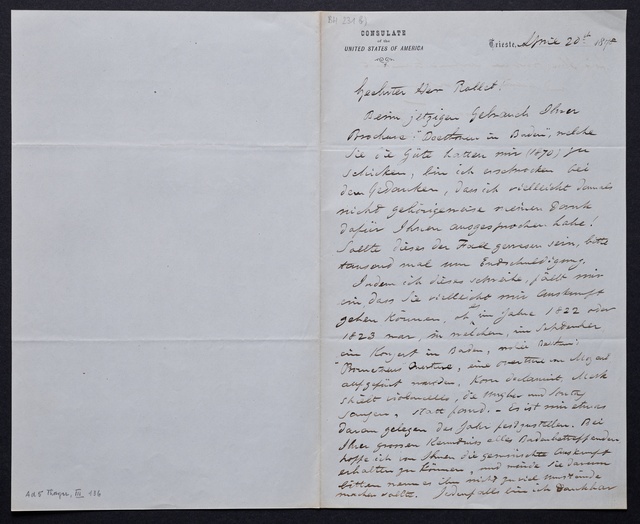 BH 231 63
CONSULATE
of the
UNITED STATES OF AMERICA
Trieste, April 20th 187
Geehrter Herr Rollet!
Beim jetzigen Gebrauch Ihrer
Brochure "Beethoven in Baden", welche
Sie die Güte hatten mir (1870) zu
schicken, bin ich erschrocken bei
dem Gedanken, dass ich vielleicht damals
nicht gehörigerweise meinen Dank
dafür Ihnen ausgesprochen habe!
Sollte dieses der Fall gewesen sein, bitte
tausend mal um Entschuldigung.
Indem ich dieses schreibe, fällt mir
ein dass Sie vielleicht mir Auskunft
geben können, ob im Jahre 1822 oder
1823 war, in welchen, im
ein Konzert in Baden, wobei Beeth:
Prometheus Overture, eine overture von Mozart
aufgefürt wurden, Korn declamirt, Merk
spielt violoncello, die Ungher und Sontag
sangen, statt fand. – Es ist mir etwas
daran gelegen das Jahr festzustellen. Bei
Ihrer grossen Kenntniss alles Badenbetreffenden
hoffe ich von Ihnen die gewünschte Auskunft
erhalten zu können, und würde Sie darum
bitten wenn es ihm nicht zu viel Umstände
machen sollte. Jedenfalls bin ich dankbar
Ad 5 Thayer, III, 136